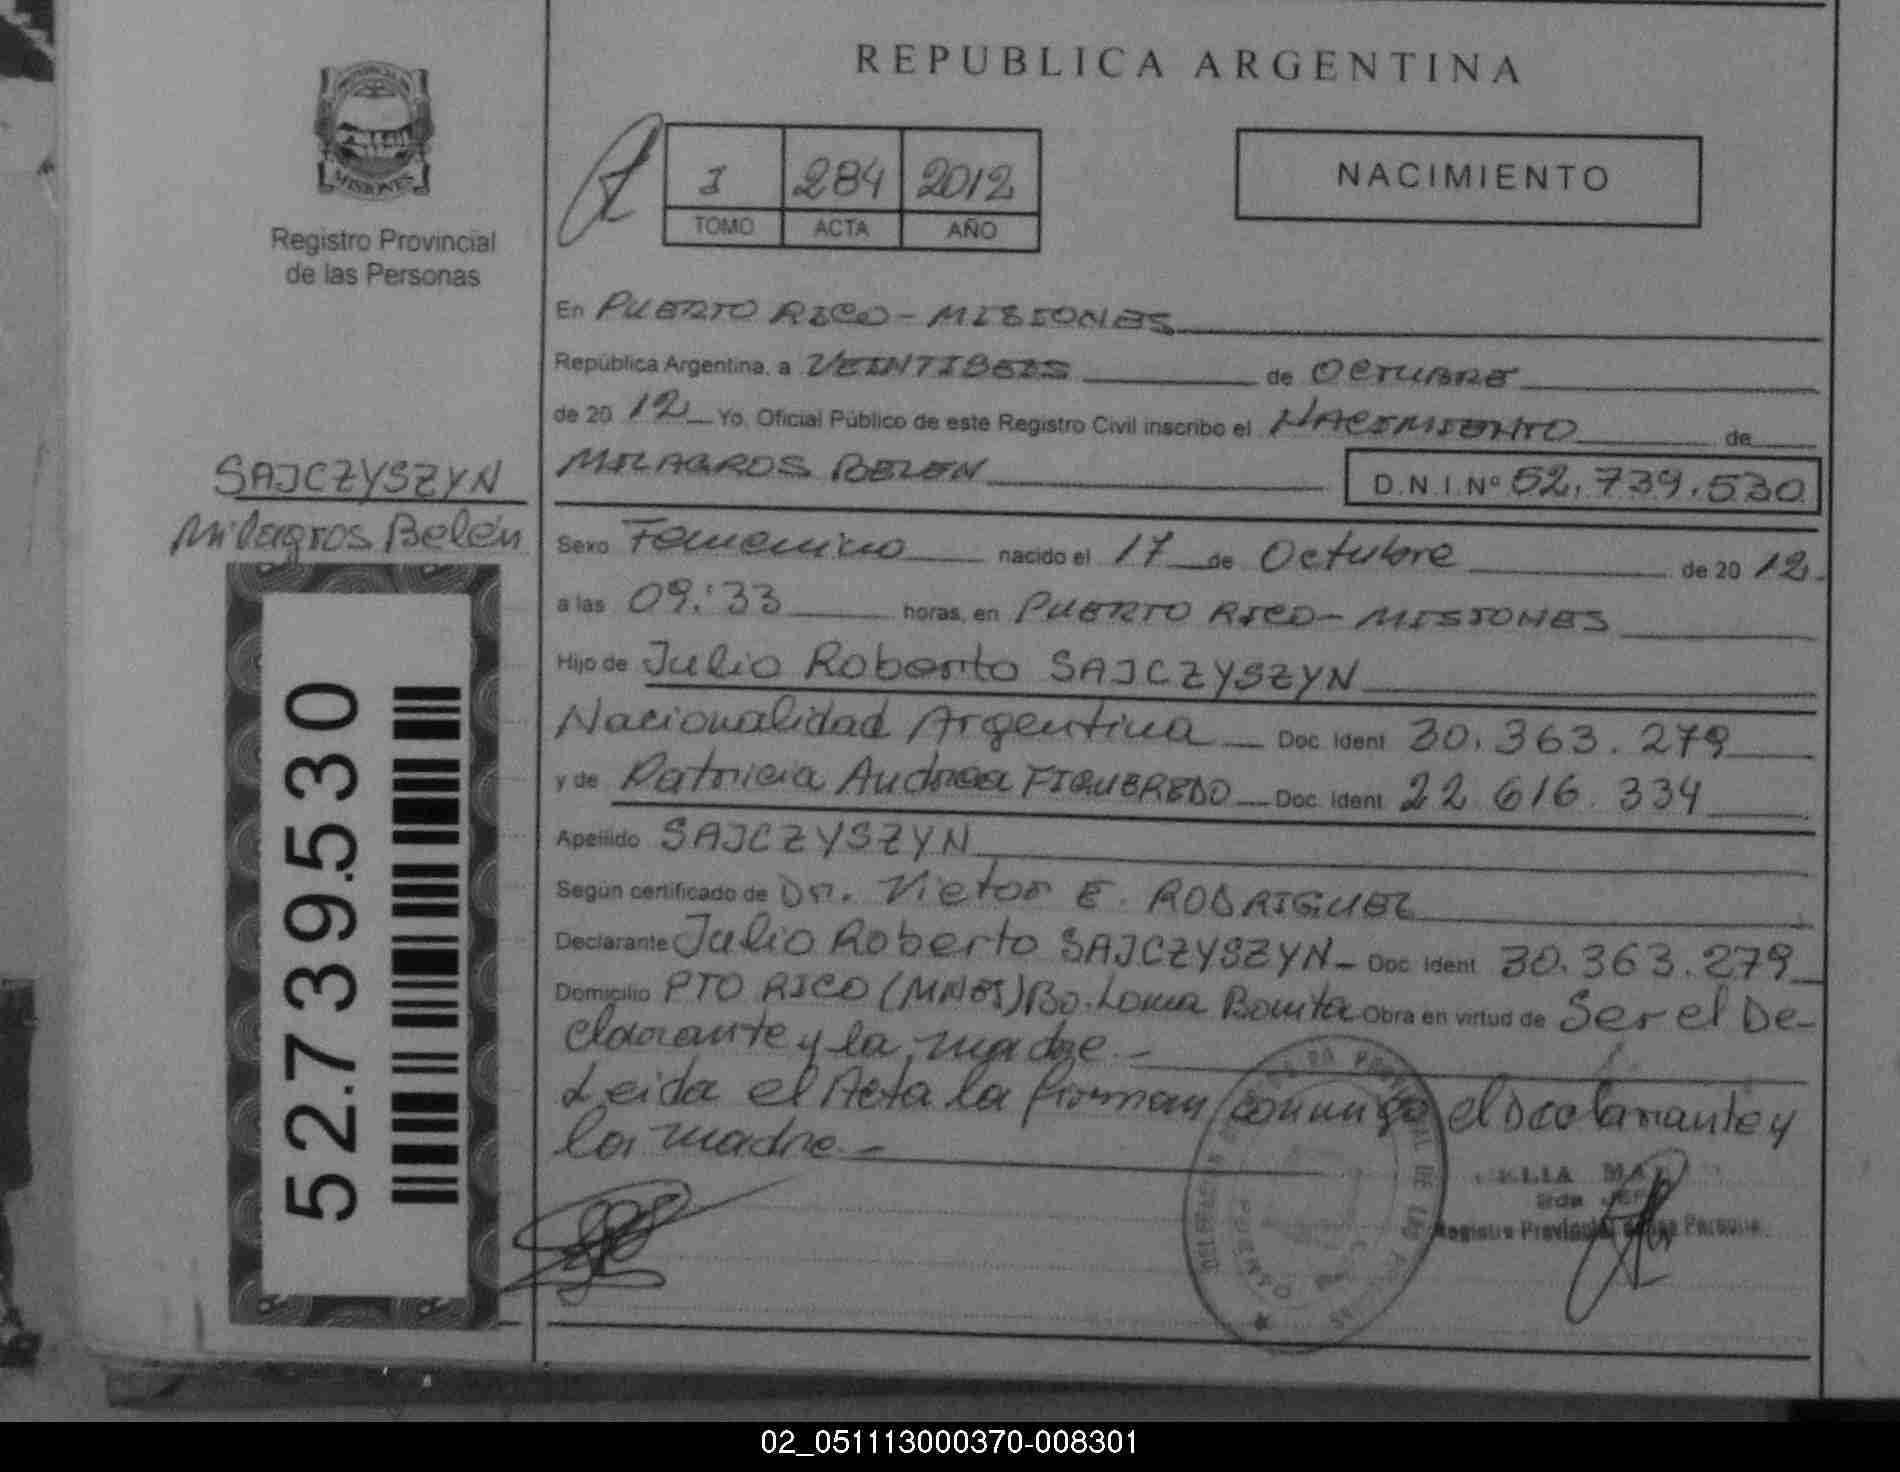 REPUBLICA ARGENTINA
MISIONES
Registro Provincial
de las Personas
I 284 2012
TOMO ACTA AÑO
NACIMIENTO
En PUERTO RICO - MISIONES
República Argentina, a VEINTISEIS de OCTUBRE
de 20 12 Yo, Oficial Público de este Registro Civil inscribo el NACIMIENTO de
MILAGROS BELEN D.N.I. Nº 52.739.530
SAJCZYSZYN
Milagros Belén
52.739.530
Sexo Femenino nacido el 17 de Octubre de 20 12.
a las 09:33 horas, en PUERTO RICO - MISIONES
Hijo de Julio Roberto SAJCZYSZYN
Nacionalidad Argentina Doc. Ident 30.363.279
y de Patricia Andrea FIGUEREDO Doc. Ident. 22.616.334
Apellido SAJCZYSZYN
Según certificado de Dr. Victor E. RODRIGUEZ
Declarante Julio Roberto SAJCZYSZYN - Doc. Ident 30.363.279
Domicilio PTO RICO (MNES) Bo. Loma Bonita Obra en virtud de Ser el De-
clarante y la madre.-
Leida el Acta la firman conmigo el Declarante y
la madre.-
Registro Provincial
02_051113000370-008301